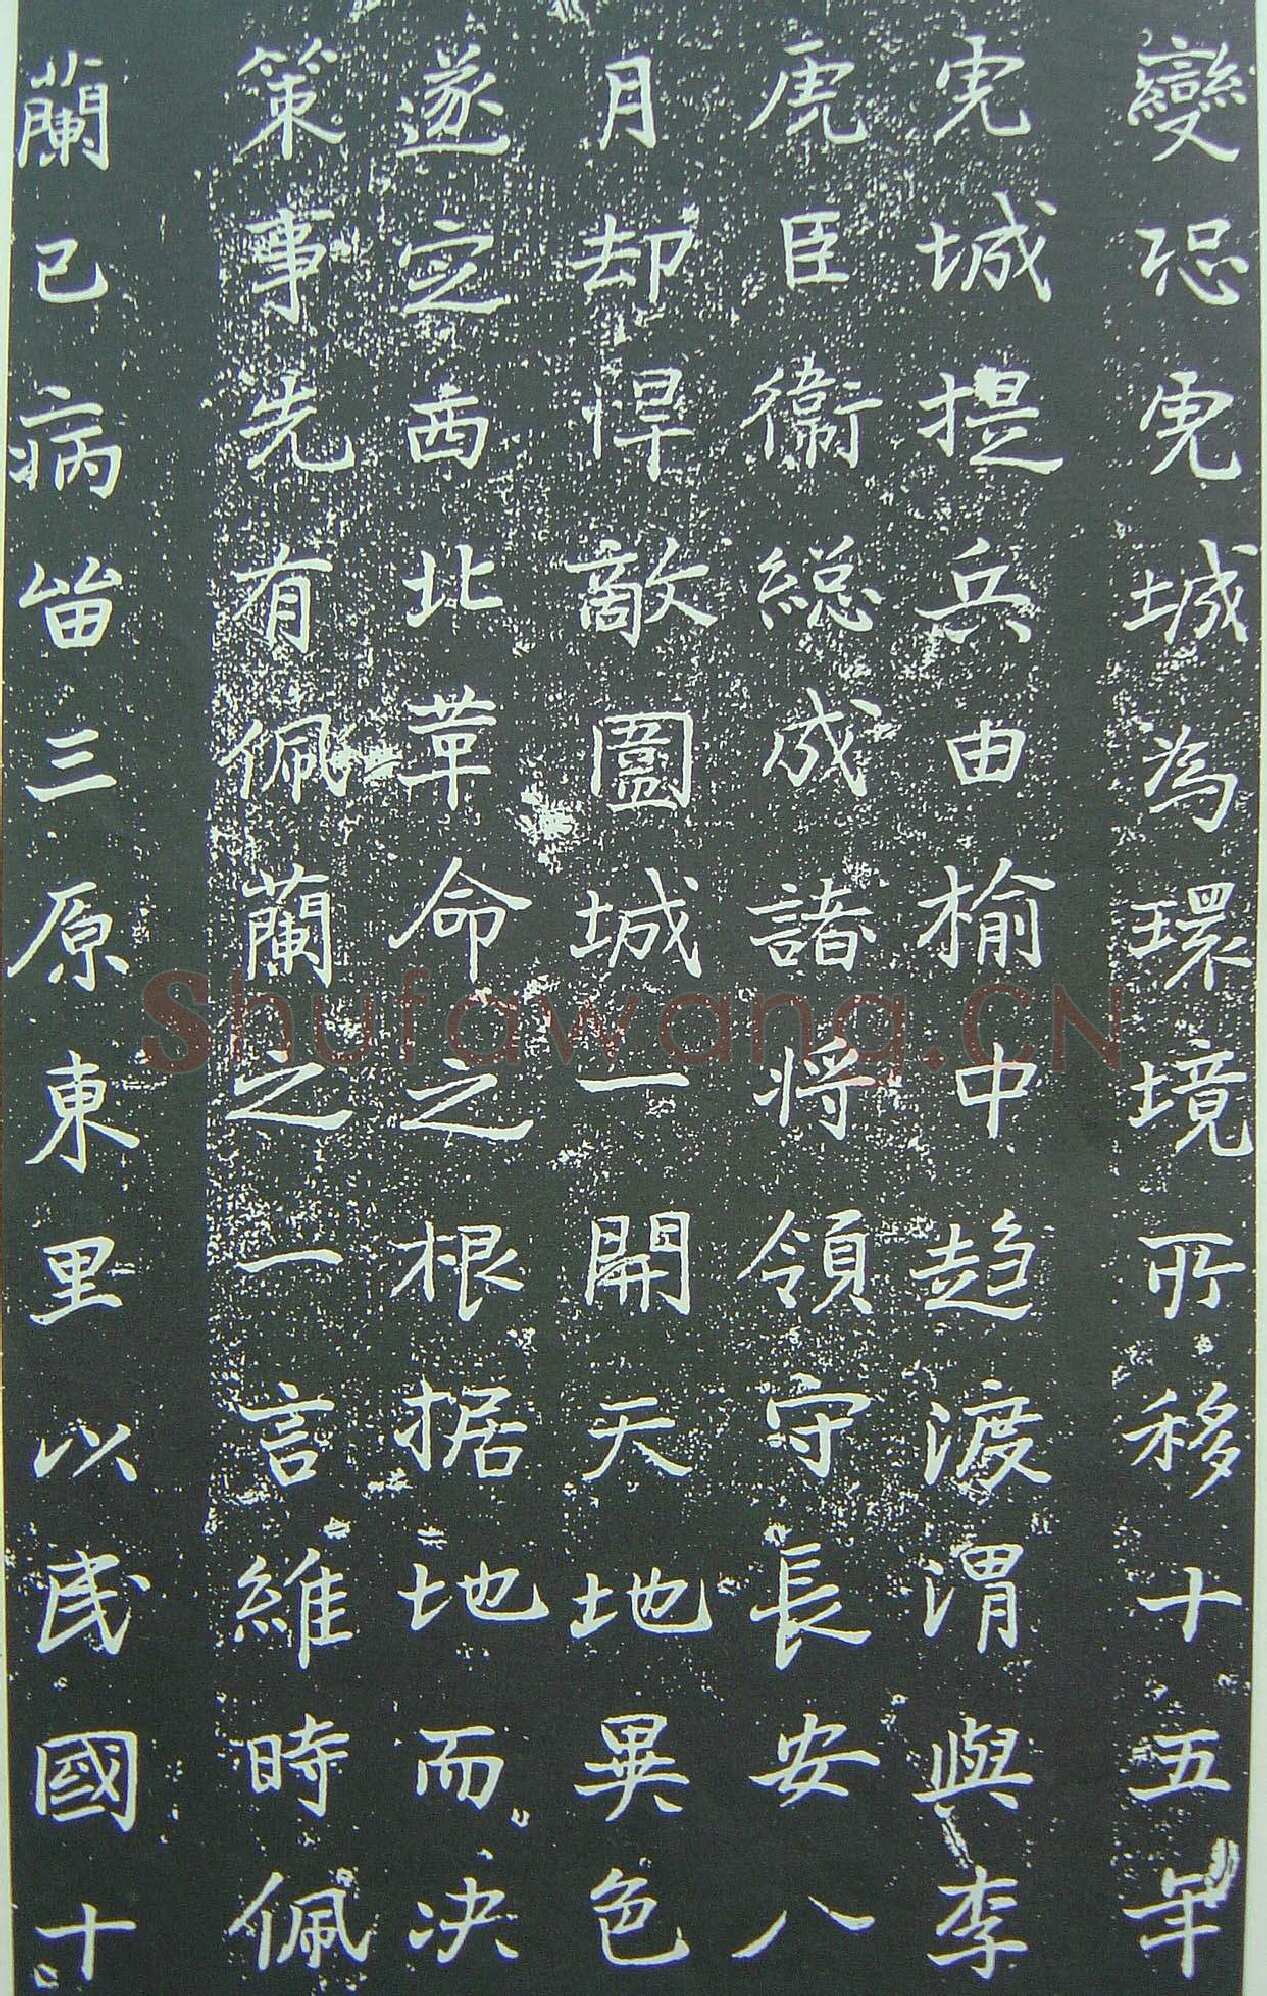 變恐虎城為環境所移十五年
虎城提兵由榆中趍渡渭與李
虎臣衛総成諸將領守長安八
月却悍敵圔城一開天地異色
遂定西北革命之根据地而决
策事先有佩蘭之一言維時佩
蘭已病留三原東里以民國十
Shufawang.CN